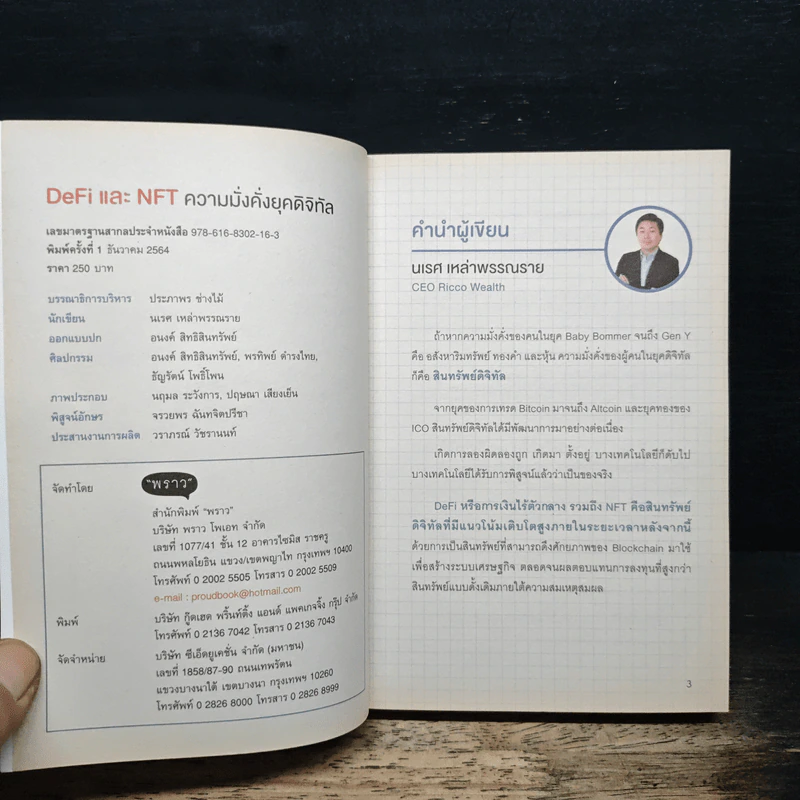 DeFi และ NFT ความมั่งคั่งยุคดิจิทัล
เลขมาตรฐานสากลประจำหนังสือ 978-616-8302-16-3
พิมพ์ครั้งที่ 1 ธันวาคม 2564
ราคา 250 บาท
บรรณาธิการบริหาร ประภาพร ช่างไม้
นักเขียน นเรศ เหล่าพรรณราย
ออกแบบปก อนงค์ สิทธิสินทรัพย์
ศิลปกรรม อนงค์ สิทธิสินทรัพย์, พรทิพย์ ดำรงไทย,
ธัญรัตน์ โพธิ์โพน
ภาพประกอบ นฤมล ระวังการ, ปฤษณา เสียงเย็น
พิสูจน์อักษร จรวยพร ฉันทจิตปรีชา
ประสานงานการผลิต วราภรณ์ วัชรานนท์
จัดทำโดย "พราว"
สำนักพิมพ์ "พราว"
บริษัท พราว โพเอท จำกัด
เลขที่ 1077/41 ชั้น 12 อาคารไซมิส ราชครู
ถนนพหลโยธิน แขวง/เขตพญาไท กรุงเทพฯ 10400
โทรศัพท์ 0 2002 5505 โทรสาร 0 2002 5509
e-mail : proudbook@hotmail.com
พิมพ์ บริษัท กู๊ดเฮด พริ้นท์ติ้ง แอนด์ แพคเกจจิ้ง กรุ๊ป จำกัด
โทรศัพท์ 0 2136 7042 โทรสาร 0 2136 7043
จัดจำหน่าย บริษัท ซีเอ็ดยูเคชั่น จำกัด (มหาชน)
เลขที่ 1858/87-90 ถนนเทพรัตน
แขวงบางนาใต้ เขตบางนา กรุงเทพฯ 10260
โทรศัพท์ 0 2826 8000 โทรสาร 0 2826 8999
คำนำผู้เขียน
นเรศ เหล่าพรรณราย
CEO Ricco Wealth
ถ้าหากความมั่งคั่งของคนในยุค Baby Bommer จนถึง Gen Y
คือ อสังหาริมทรัพย์ ทองคำ และหุ้น ความมั่งคั่งของผู้คนในยุคดิจิทัล
ก็คือ สินทรัพย์ดิจิทัล
จากยุคของการเทรด Bitcoin มาจนถึง Altcoin และยุคทองของ
ICO สินทรัพย์ดิจิทัลได้มีพัฒนาการมาอย่างต่อเนื่อง
เกิดการลองผิดลองถูก เกิดมา ตั้งอยู่ บางเทคโนโลยีก็ดับไป
บางเทคโนโลยีได้รับการพิสูจน์แล้วว่าเป็นของจริง
DeFi หรือการเงินไร้ตัวกลาง รวมถึง NFT คือสินทรัพย์
ดิจิทัลที่มีแนวโน้มเติบโตสูงภายในระยะเวลาหลังจากนี้
ด้วยการเป็นสินทรัพย์ที่สามารถดึงศักยภาพของ Blockchain มาใช้
เพื่อสร้างระบบเศรษฐกิจ ตลอดจนผลตอบแทนการลงทุนที่สูงกว่า
สินทรัพย์แบบดั้งเดิมภายใต้ความสมเหตุสมผล
3